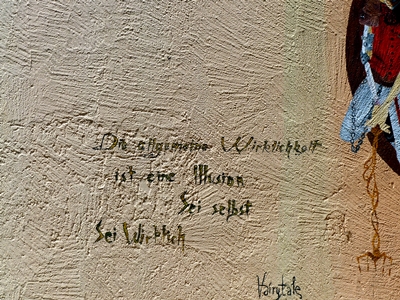 Die allgemeine Wirklichkeit
ist eine Illusion
Sei selbst
Sei Wirklich
Vairytale